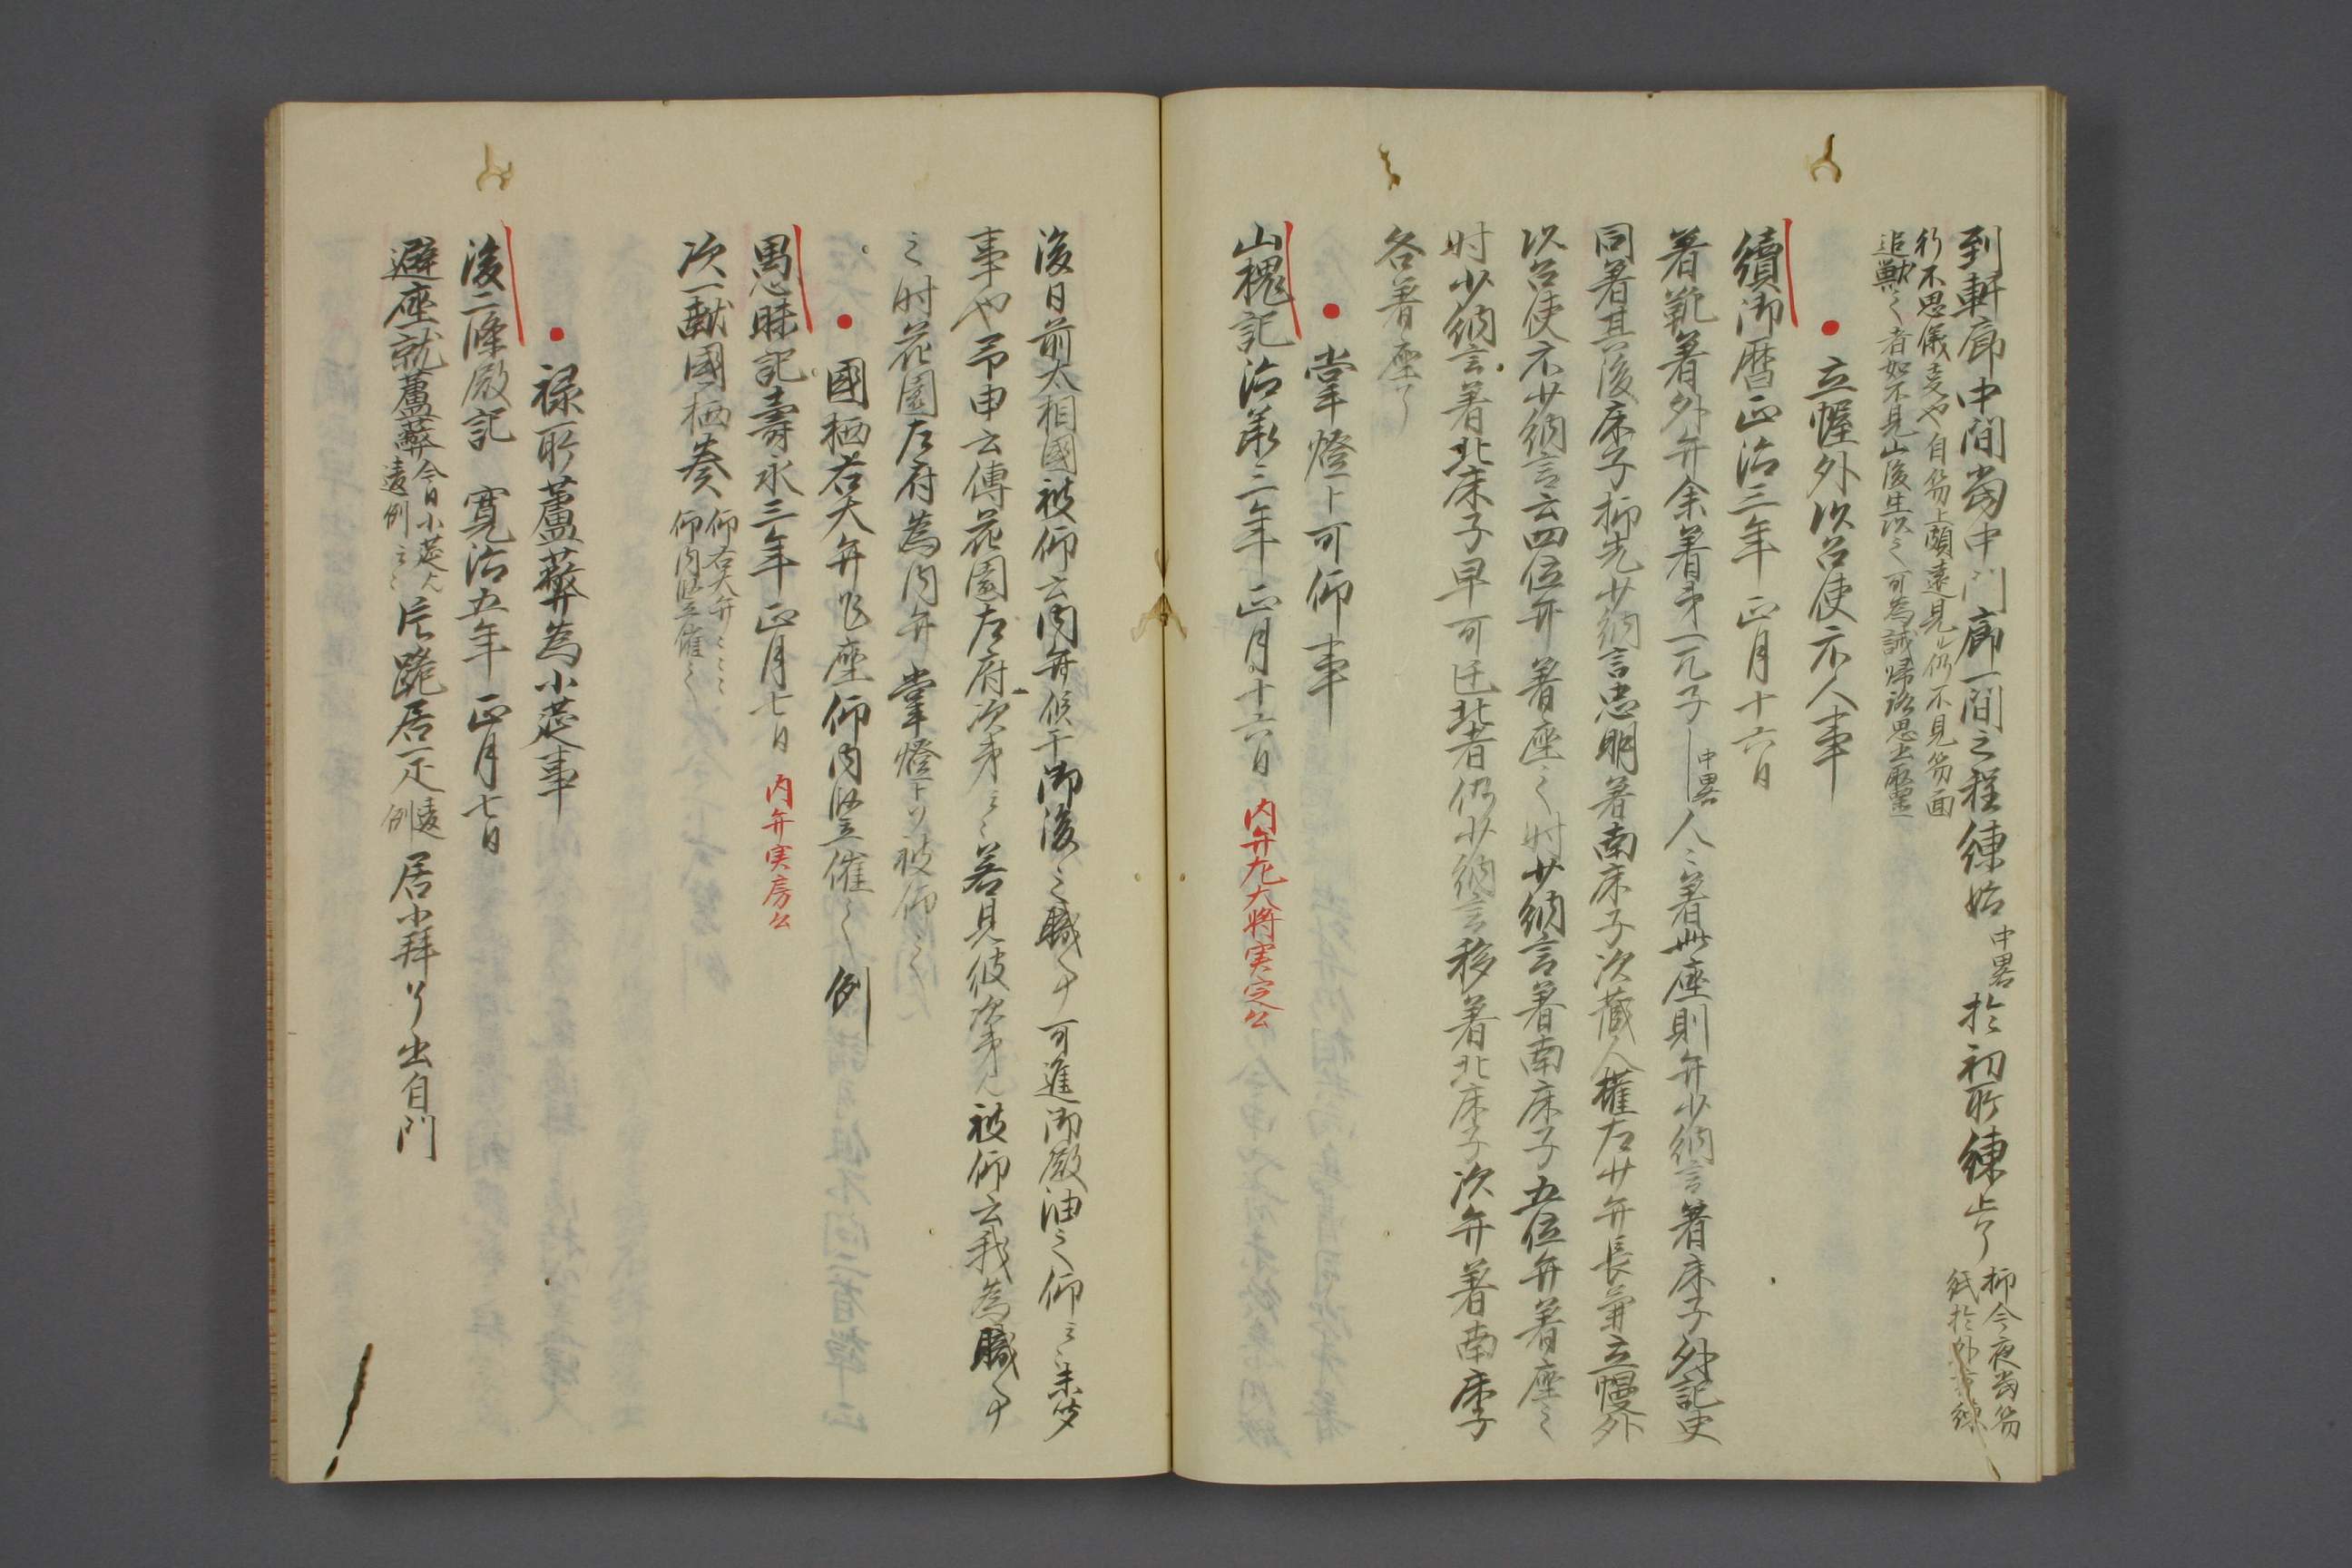 到軒廊中間当中門廊一間之程練始中畧於初所練止了抑今夜当笏
紙於外
行不思儀麦や自笏上頗遠見也仍不見笏面
追獣之者如不見山後生以之可為誡帰路思出
立幄外以召使示人事
續御暦正治三年正月十六日
著靴著外弁余著第一兀子中畧人々著此座則弁少納言著床子外記史
同著其後床子抑先少納言忠明著南床子次蔵人権左少弁長兼立幔外
以召使示少納言云四位弁著座之時少納言著南床子五位弁著座之
時少納言著北床子早可迁北者仍少納言移著北床子次弁著南床子
各著座了
掌燈上可仰事
山槐記治承三年正月十六日内弁左大将実定公
後日前太相國被仰云内弁候干御後之職事可進御殿油之仰云々未
事や予申云傳花園左府次第云々若見彼次第人被仰云我為職事
之時花園左府為内弁掌燈上ツ被仰之
國栖右大弁作座仰内竪催之例
愚昧記壽永三年正月七日内弁実房公
次一献國栖奏仰右大弁々々
仰内竪催之
禄所薦弊為小莚事
後二條殿記寛治五年正月七日
避座就薦弊今日小莚
違例云々左跪居一疋違
例居小拝了出自門